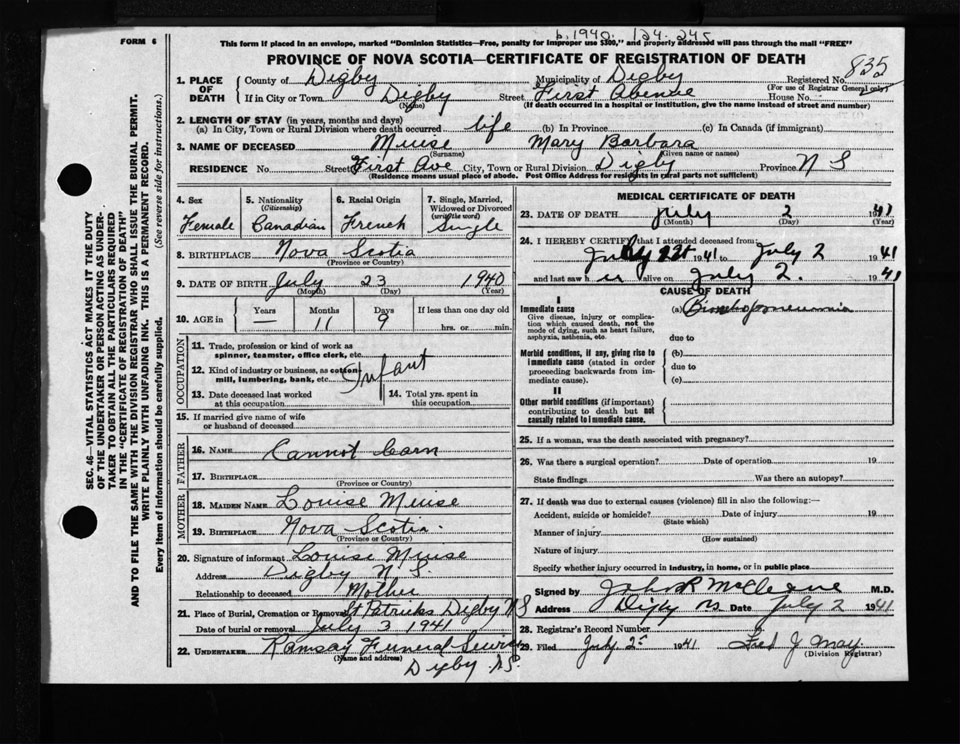 b. 1940. 124. 245
FORM 6
This form if placed in an envelope, marked "Dominion Statistics—Free, penalty for improper use $300," and properly addressed will pass through the mail "FREE"
PROVINCE OF NOVA SCOTIA—CERTIFICATE OF REGISTRATION OF DEATH
835
1. PLACE OF DEATH
County of Digby Municipality of Digby Registered No.
(For use of Registrar General only)
If in City or Town Digby Street First Avenue House No.
(Name) (If death occurred in a hospital or institution, give the name instead of street and number)
2. LENGTH OF STAY (in years, months and days)
(a) In City, Town or Rural Division where death occurred life (b) In Province (c) In Canada (if immigrant)
3. NAME OF DECEASED Muise Mary Barbara
(Surname) (Given name or names)
RESIDENCE No. Street First Ave City, Town or Rural Division Digby Province N S
(Residence means usual place of abode. Post Office Address for residents in rural parts not sufficient)
4. Sex
Female
5. Nationality
(Citizenship)
Canadian
6. Racial Origin
French
7. Single, Married,
Widowed or Divorced
(write the word)
Single
8. BIRTHPLACE Nova Scotia
(Province or Country)
9. DATE OF BIRTH July 23 1940
(Month) (Day) (Year)
10. AGE in
Years Months Days If less than one day old
— 11 9 hrs. or min.
OCCUPATION
11. Trade, profession or kind of work as
spinner, teamster, office clerk, etc.
12. Kind of industry or business, as cotton
mill, lumbering, bank, etc. Infant
13. Date deceased last worked
at this occupation
14. Total yrs. spent in
this occupation
15. If married give name of wife
or husband of deceased
FATHER
16. NAME Cannot learn
17. BIRTHPLACE
(Province or Country)
MOTHER
18. MAIDEN NAME Louise Muise
19. BIRTHPLACE Nova Scotia.
(Province or Country)
20. Signature of informant Louise Muise
Address Digby N. S.
Relationship to deceased Mother
21. Place of Burial, Cremation or Removal St Patricks Digby N S
Date of burial or removal July 3 1941
22. UNDERTAKER Ramsay Funeral Service
(Name and address)
Digby N.S.
MEDICAL CERTIFICATE OF DEATH
23. DATE OF DEATH July 2 1941
(Month) (Day)
24. I HEREBY CERTIFY that I attended deceased from:
July 1941 to July 2 1941
and last saw h er alive on July 2. 1941
CAUSE OF DEATH
I
Immediate cause
Give disease, injury or complica-
tion which caused death, not the
mode of dying, such as heart failure,
asphyxia, asthenia, etc.
(a) Bronchopneumonia
due to
Morbid conditions, if any, giving rise to
immediate cause (stated in order
proceeding backwards from im-
mediate cause).
(b)
due to
(c)
II
Other morbid conditions (if important)
contributing to death but not
causally related to immediate cause.
25. If a woman, was the death associated with pregnancy?
26. Was there a surgical operation? Date of operation 19
State findings Was there an autopsy?
27. If death was due to external causes (violence) fill in also the following:—
Accident, suicide or homicide? Date of injury 19
(State which)
Manner of injury
(How sustained)
Nature of injury
Specify whether injury occurred in industry, in home, or in public place
Signed by John R McCleave M.D.
Address Digby N.S. Date July 2 1941
28. Registrar's Record Number
29. Filed July 25 1941 Fred J May
(Division Registrar)
SEC. 46—VITAL STATISTICS ACT MAKES IT THE DUTY
OF THE UNDERTAKER OR PERSON ACTING AS UNDER-
TAKER TO OBTAIN ALL THE PARTICULARS REQUIRED
IN THE "CERTIFICATE OF REGISTRATION OF DEATH"
AND TO FILE THE SAME WITH THE DIVISION REGISTRAR WHO SHALL ISSUE THE BURIAL PERMIT.
WRITE PLAINLY WITH UNFADING INK. THIS IS A PERMANENT RECORD.
Every item of information should be carefully supplied. (See reverse side for instructions.)